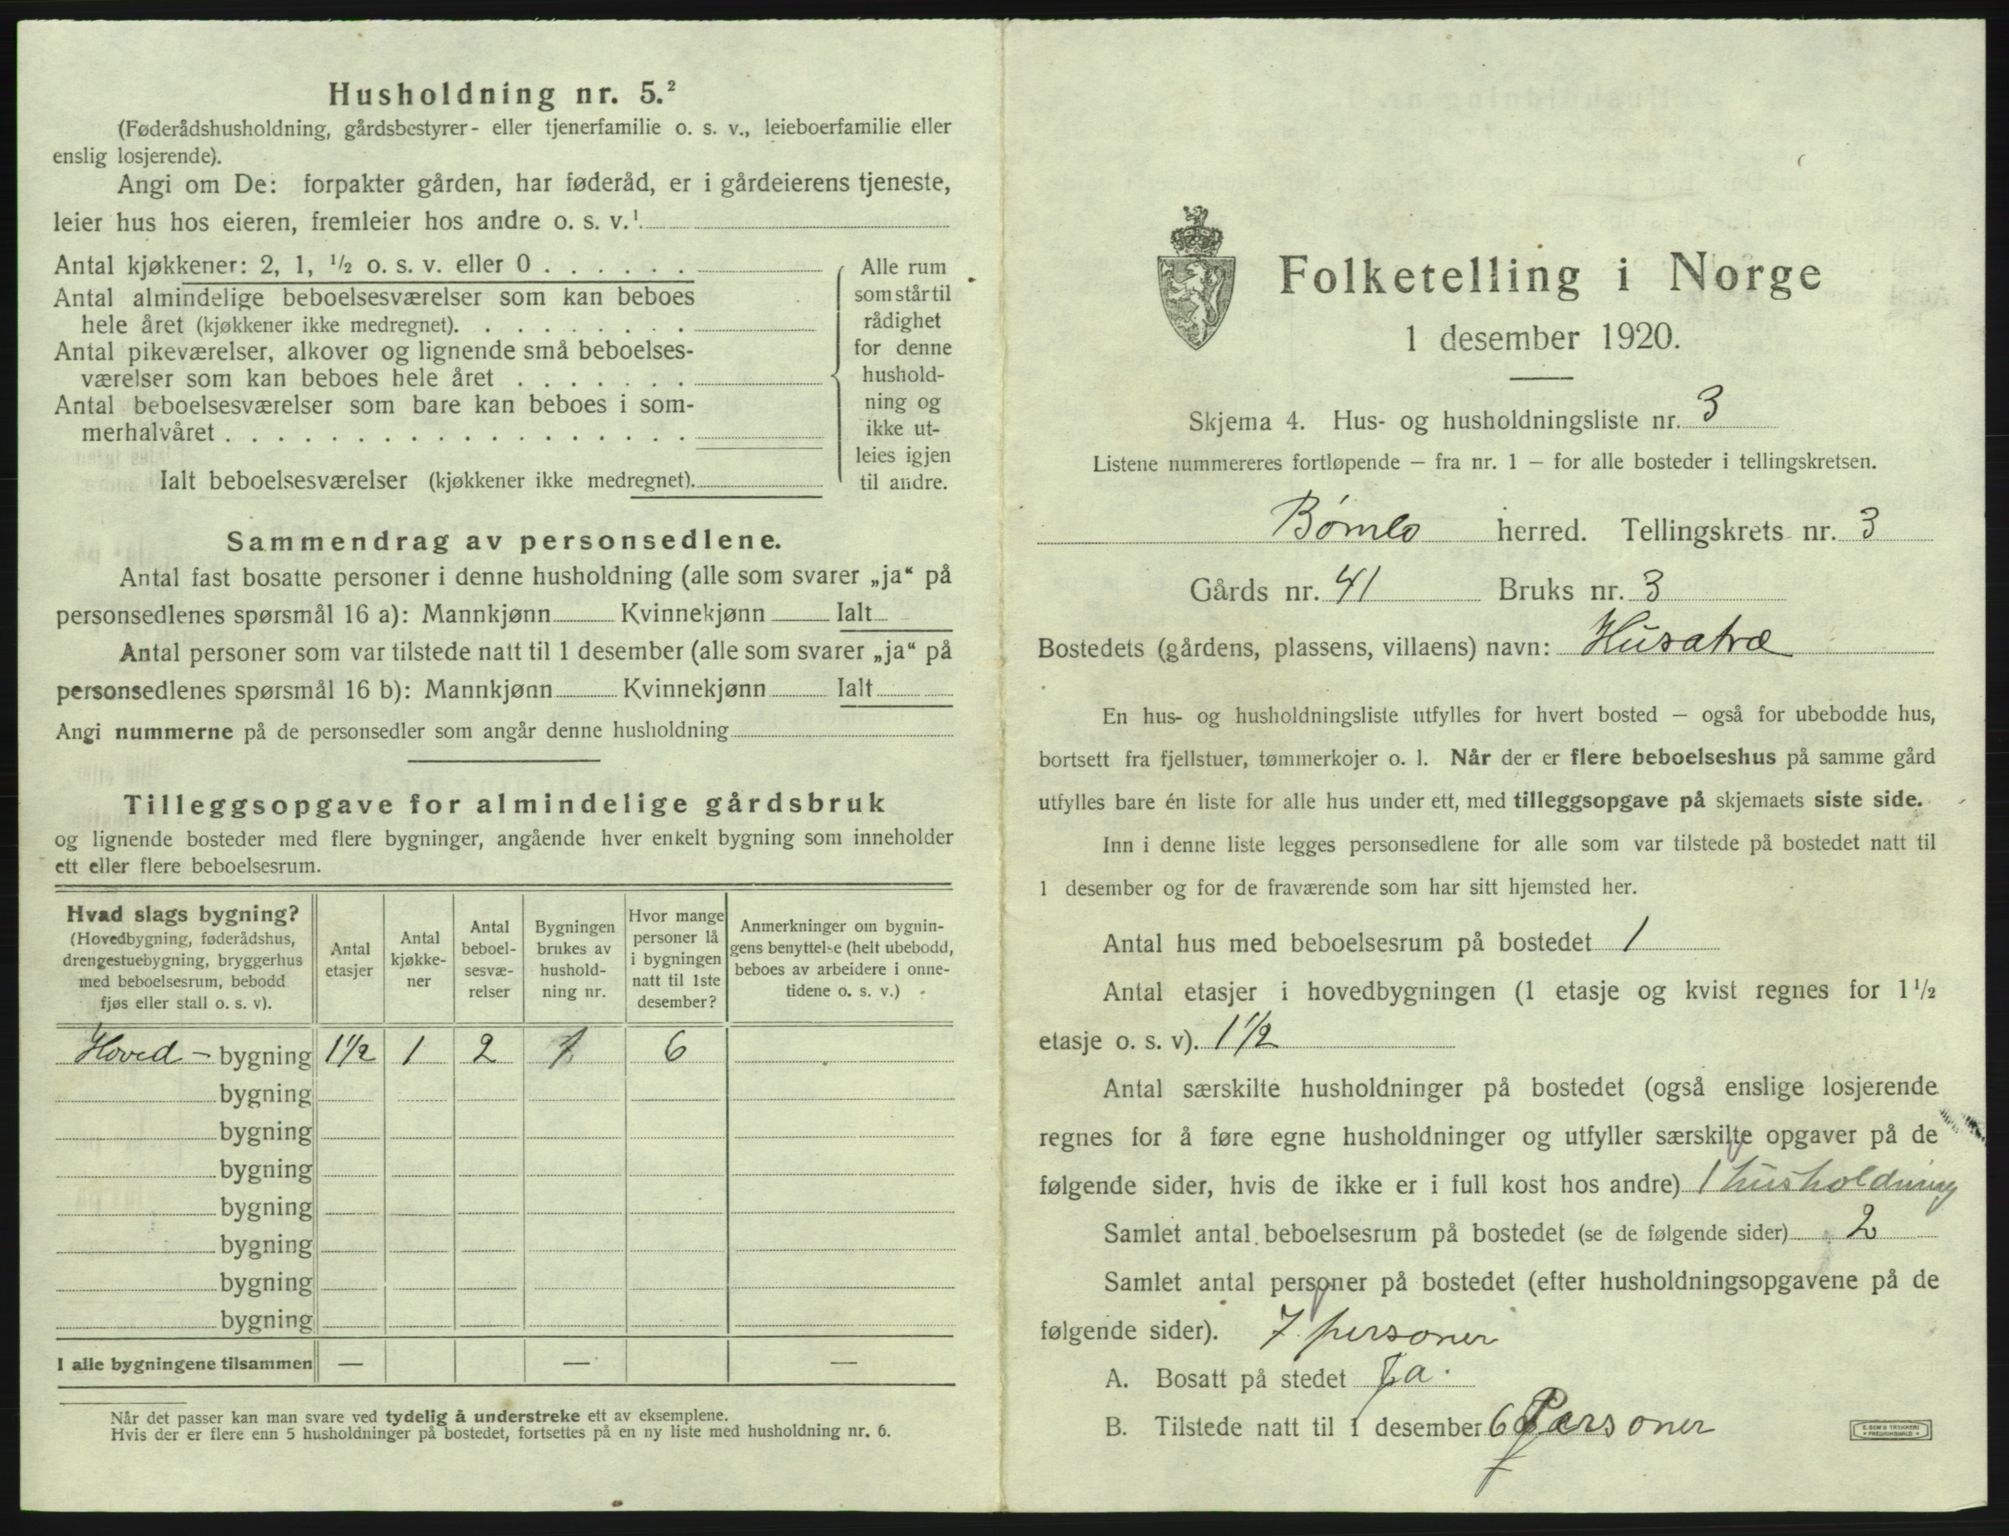 Husholdning nr. 5.²
(Føderådshusholdning, gårdsbestyrer- eller tjenerfamilie o. s. v., leieboerfamilie eller
enslig losjerende).
Angi om De: forpakter gården, har føderåd, er i gårdeierens tjeneste,
leier hus hos eieren, fremleier hos andre o. s. v.¹
Antal kjøkkener: 2, 1, ½ o. s. v. eller 0
Antal almindelige beboelsesværelser som kan beboes
hele året (kjøkkener ikke medregnet).
Antal pikeværelser, alkover og lignende små beboelses-
værelser som kan beboes hele året
Antal beboelsesværelser som bare kan beboes i som-
merhalvåret
Ialt beboelsesværelser (kjøkkener ikke medregnet).
Alle rum
som står til
rådighet
for denne
hushold-
ning og
ikke ut-
leies igjen
til andre.
Sammendrag av personsedlene.
Antal fast bosatte personer i denne husholdning (alle som svarer „ja“ på
personsedlenes spørsmål 16 a): Mannkjønn Kvinnekjønn Ialt
Antal personer som var tilstede natt til 1 desember (alle som svarer „ja“ på
personsedlenes spørsmål 16 b): Mannkjønn Kvinnekjønn Ialt
Angi nummerne på de personsedler som angår denne husholdning
Tilleggsopgave for almindelige gårdsbruk
og lignende bosteder med flere bygninger, angående hver enkelt bygning som inneholder
ett eller flere beboelsesrum.
Hvad slags bygning?
(Hovedbygning, føderådshus,
drengestuebygning, bryggerhus
med beboelsesrum, bebodd
fjøs eller stall o. s. v).
Antal
etasjer
Antal
kjøkke-
ner
Antal
beboel-
sesvæ-
relser
Bygningen
brukes av
hushold-
ning nr.
Hvor mange
personer lå
i bygningen
natt til 1ste
desember?
Anmerkninger om bygnin-
gens benyttelse (helt ubebodd,
beboes av arbeidere i onne-
tidene o. s. v.)
Hoved - bygning 1½ 1 2 1 6
bygning
bygning
bygning
bygning
bygning
bygning
bygning
I alle bygningene tilsammen — — —
Når det passer kan man svare ved tydelig å understreke ett av eksemplene.
Hvis der er flere enn 5 husholdninger på bostedet, fortsettes på en ny liste med husholdning nr. 6.
Folketelling i Norge
1 desember 1920.
Skjema 4. Hus- og husholdningsliste nr. 3
Listene nummereres fortløpende — fra nr. 1 — for alle bosteder i tellingskretsen.
Bømlo herred. Tellingskrets nr. 3
Gårds nr. 41 Bruks nr. 3
Bostedets (gårdens, plassens, villaens) navn: Husatræ
En hus- og husholdningsliste utfylles for hvert bosted — også for ubebodde hus,
bortsett fra fjellstuer, tømmerkojer o. l. Når der er flere beboelseshus på samme gård
utfylles bare én liste for alle hus under ett, med tilleggsopgave på skjemaets siste side.
Inn i denne liste legges personsedlene for alle som var tilstede på bostedet natt til
1 desember og for de fraværende som har sitt hjemsted her.
Antal hus med beboelsesrum på bostedet 1
Antal etasjer i hovedbygningen (1 etasje og kvist regnes for 1½
etasje o. s. v). 1½
Antal særskilte husholdninger på bostedet (også enslige losjerende
regnes for å føre egne husholdninger og utfyller særskilte opgaver på de
følgende sider, hvis de ikke er i full kost hos andre) 1 husholdning
Samlet antal beboelsesrum på bostedet (se de følgende sider) 2
Samlet antal personer på bostedet (efter husholdningsopgavene på de
følgende sider). 7 personer
A. Bosatt på stedet Ja.
B. Tilstede natt til 1 desember 6 Personer